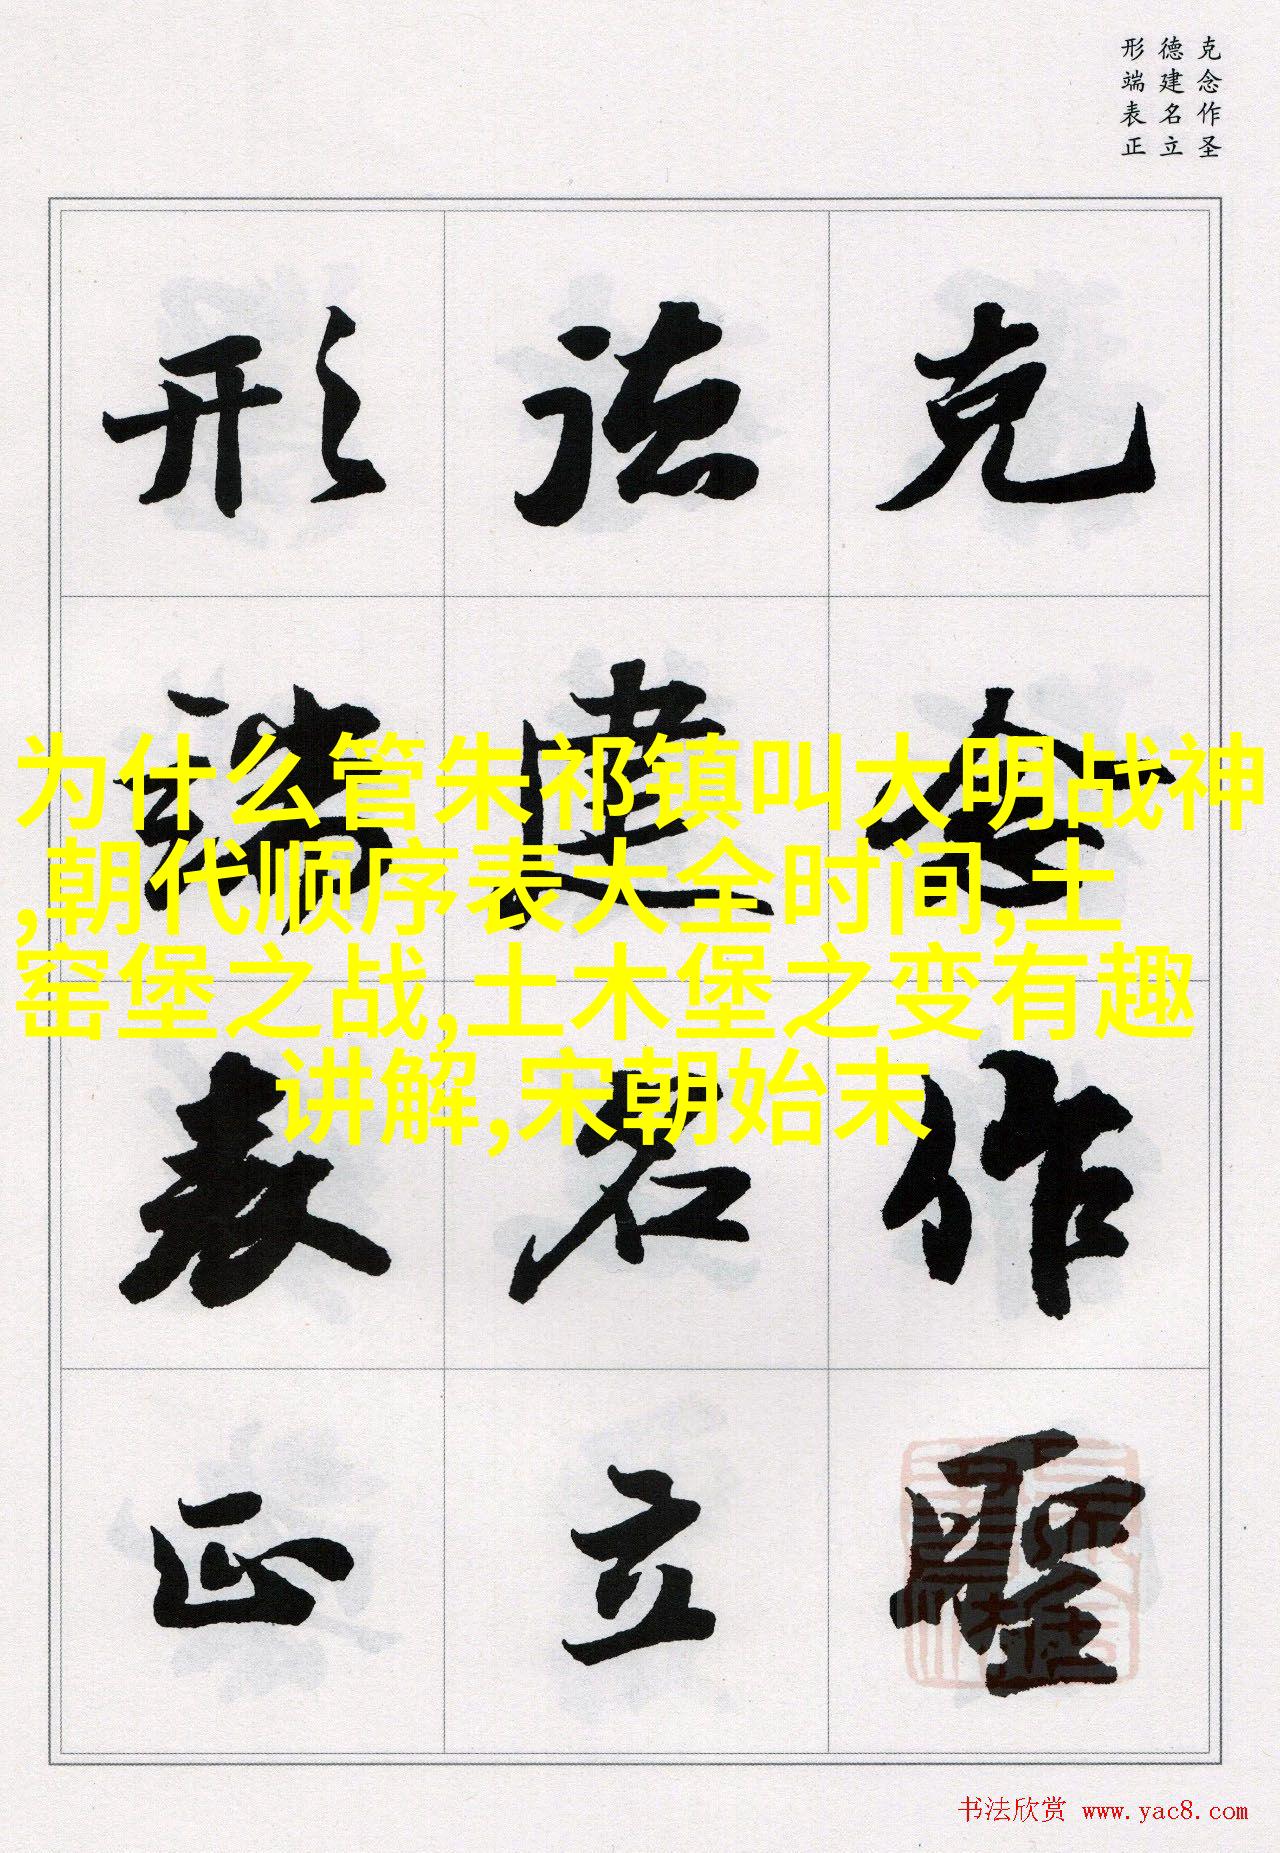 克念作圣
德建名立
形端表正
克念作聖
德建名立
形端表正
为什么管朱祁镇叫大明战神
,朝代顺序表大全时间,土
窑堡之战,土木堡之变有趣
讲解,宋朝始末
书法欣赏 www.yac8.com